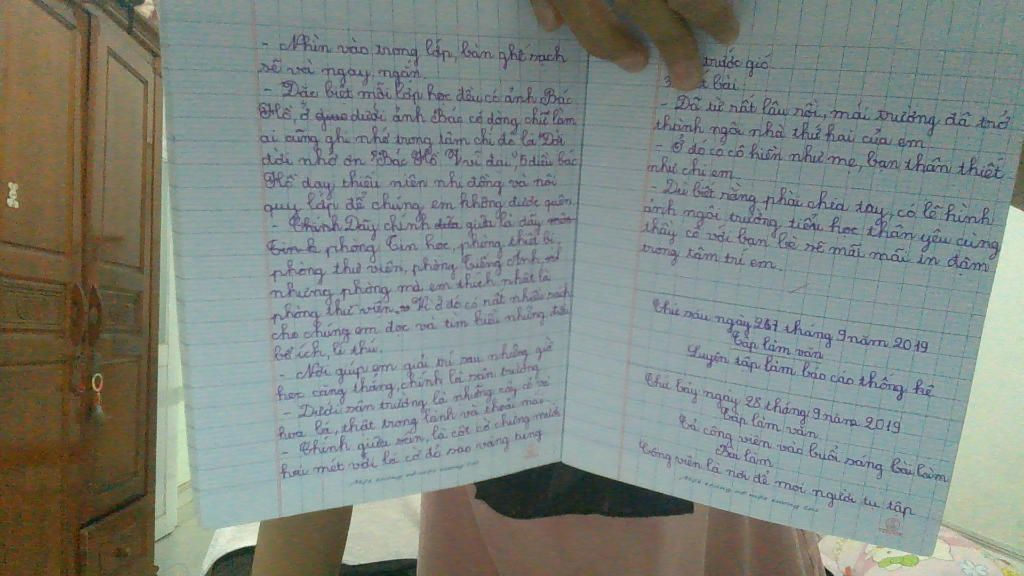 - Nhìn vào trong lớp, bàn ghế sạch
sẽ và ngay ngắn.
- Đặc biệt mỗi lớp học đều có ảnh Bác
Hồ, ở dưới ảnh Bác có dòng chữ làm
ai cũng ghi nhớ trong tâm chí đó là "Đời
đời nhớ ơn Bác Hồ vĩ đại", 5 điều Bác
Hồ dạy thiếu niên nhi đồng và nội
quy lớp để chúng em không được quên.
- Dãy chính giữa là dãy
phòng Tin học, phòng thiết bị,
phòng thư viện, phòng Tiếng Anh
nhưng phòng mà em thích nhất là
phòng thư viện. Vì ở đó có rất nhiều sách
cho chúng em đọc và tìm hiểu những điều
bổ ích, lí thú.
- Nơi giúp em giải trí sau những giờ
học căng thẳng, chính là sân trường.
- Dưới sân trường là những cây cổ
hoa lá, thật trong lành và thoải mái.
- Chính giữa sân, là cột cờ chừng mười
hai mét với lá cờ đỏ sao vàng tung
Một tương
trước gió
3 bài
- Đã từ rất lâu rồi, mái trường đã trở
thành ngôi nhà thứ hai của em.
- Ở đó có cô hiền như mẹ, bạn thân thiết
như chị em.
- Dù biết rằng phải chia tay, có lẽ hình
ảnh ngôi trường tiểu học thân yêu cùng
thầy cô với bạn bè sẽ mãi mãi in đậm
trong tâm trí em.
Thứ sáu ngày 27 tháng 9 năm 2019
Tập làm văn
Luyện tập làm báo cáo thống kê
Thứ bảy ngày 28 tháng 9 năm 2019
Tập làm văn
Tả công viên vào buổi sáng bài làm
Bài làm
Công viên là nơi để mọi người tụ tập